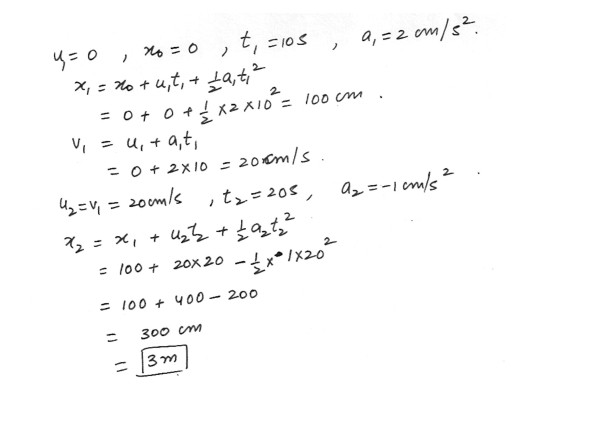 u₁ = 0 , x₀ = 0 , t₁ = 10s , a₁ = 2 cm/s².
x₁ = x₀ + u₁t₁ + ½a₁t₁²
= 0 + 0 + ½ × 2 × 10² = 100 cm .
v₁ = u₁ + a₁t₁
= 0 + 2×10 = 20cm/s .
u₂ = v₁ = 20cm/s , t₂ = 20s , a₂ = -1 cm/s² .
x₂ = x₁ + u₂t₂ + ½a₂t₂²
= 100 + 20×20 - ½ × 1×20²
= 100 + 400 - 200
= 300 cm
= 3m